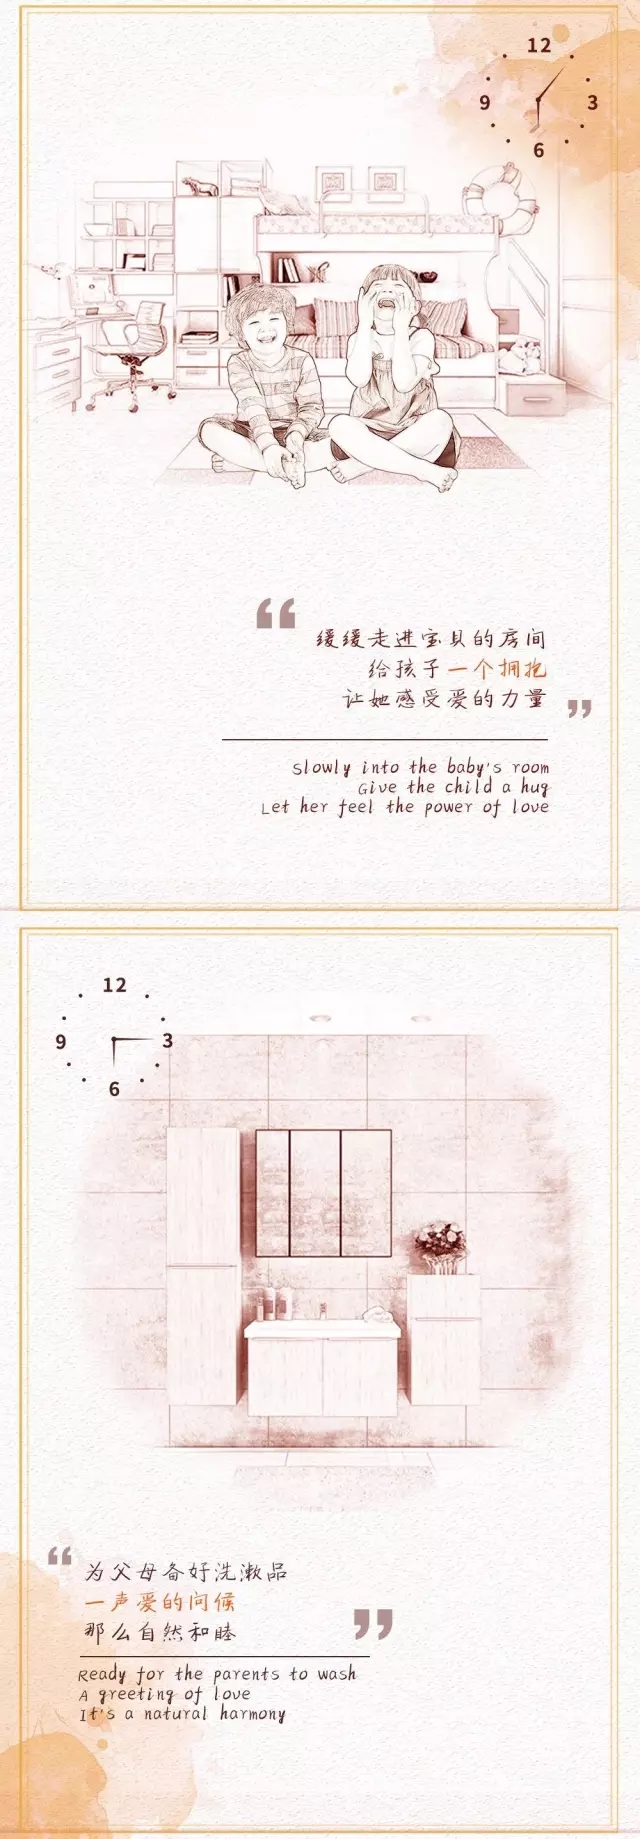 12
9
3
6
缓缓走进宝贝的房间
给孩子一个拥抱
让她感受爱的力量
Slowly into the baby's room
Give the child a hug
Let her feel the power of love
12
9
3
6
为父母备好洗漱品
一声爱的问候
那么自然和睦
Ready for the parents to wash
A greeting of love
It's a natural harmony